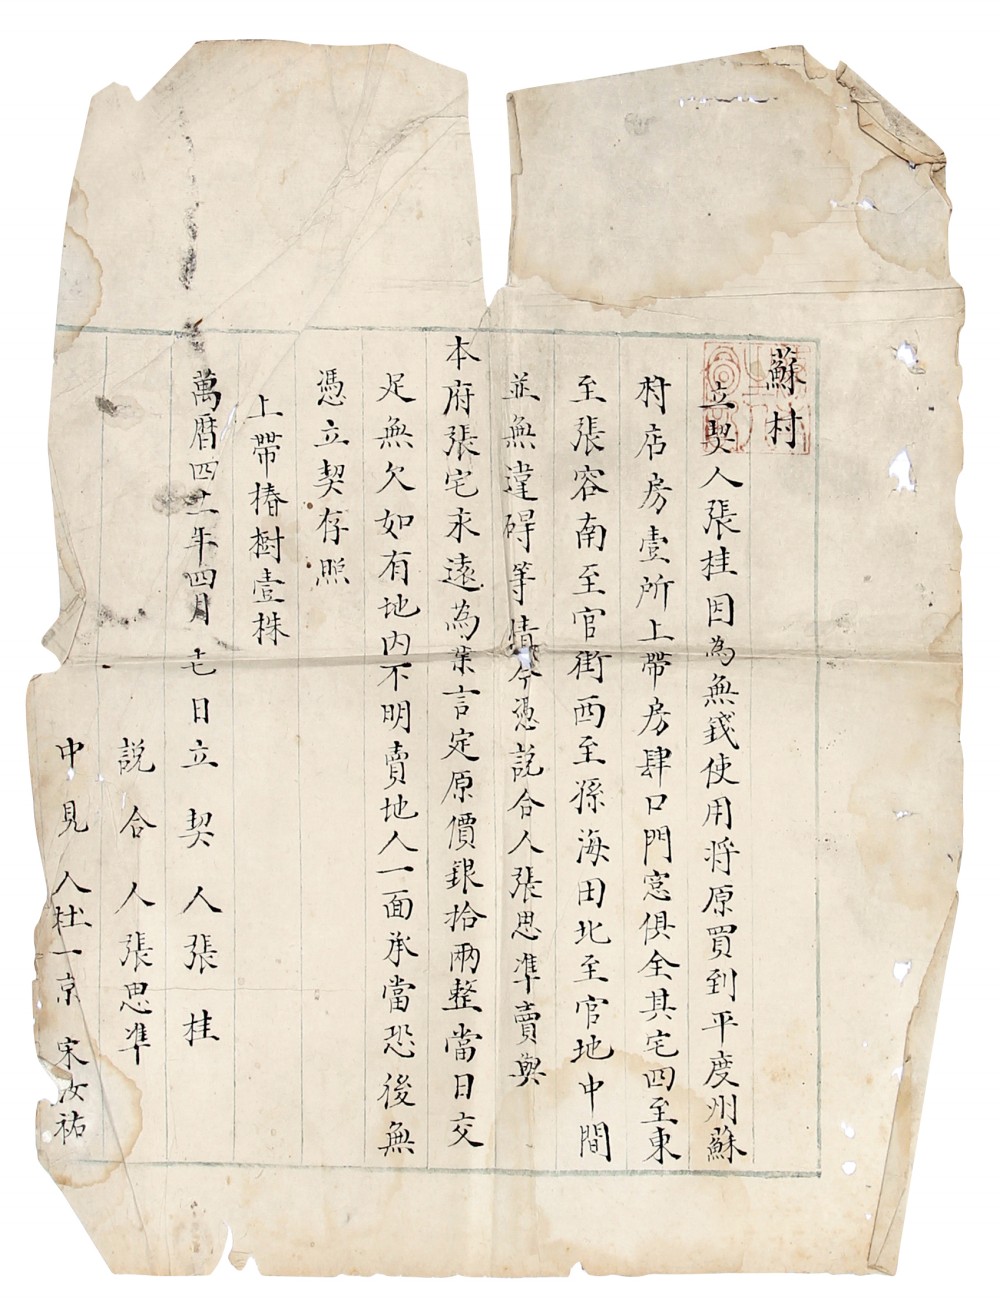 蘇村
立契人張桂因為無錢使用将原買到平度州蘇
村店房壹所上帶房肆口門窓俱全其宅四至東
至張容南至官街西至孫海田北至官地中間
並無違碍等情今憑説合人張思準賣與
本府張宅永遠為業言定原價銀拾兩整當日交
足無欠如有地内不明賣地人一面承當恐後無
憑立契存照
上帶椿樹壹株
萬曆四十二年四月十七日立契人張桂
説合人張思準
中見人杜一京 宋汝祐